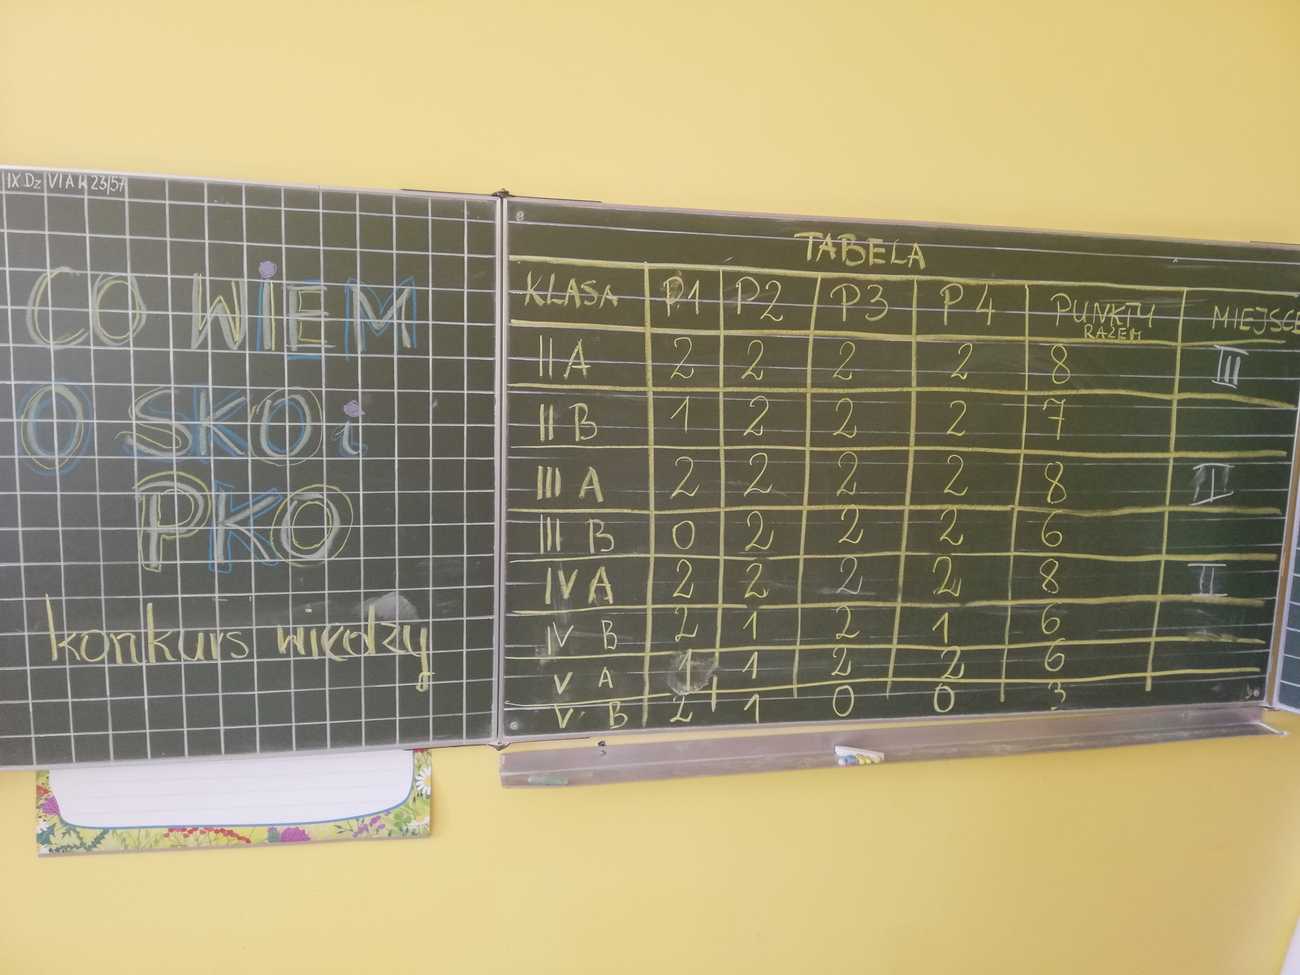 IX Dz VI A k 23/57
CO WIEM
O SKO i
PKO
konkurs wiedzy
TABELA
KLASA P1 P2 P3 P4 PUNKTY RAZEM MIEJSCE
II A 2 2 2 2 8 III
II B 1 2 2 2 7
III A 2 2 2 2 8 I
III B 0 2 2 2 6
IV A 2 2 2 2 8 II
IV B 2 1 2 1 6
V A 1 1 2 2 6
V B 2 1 0 0 3